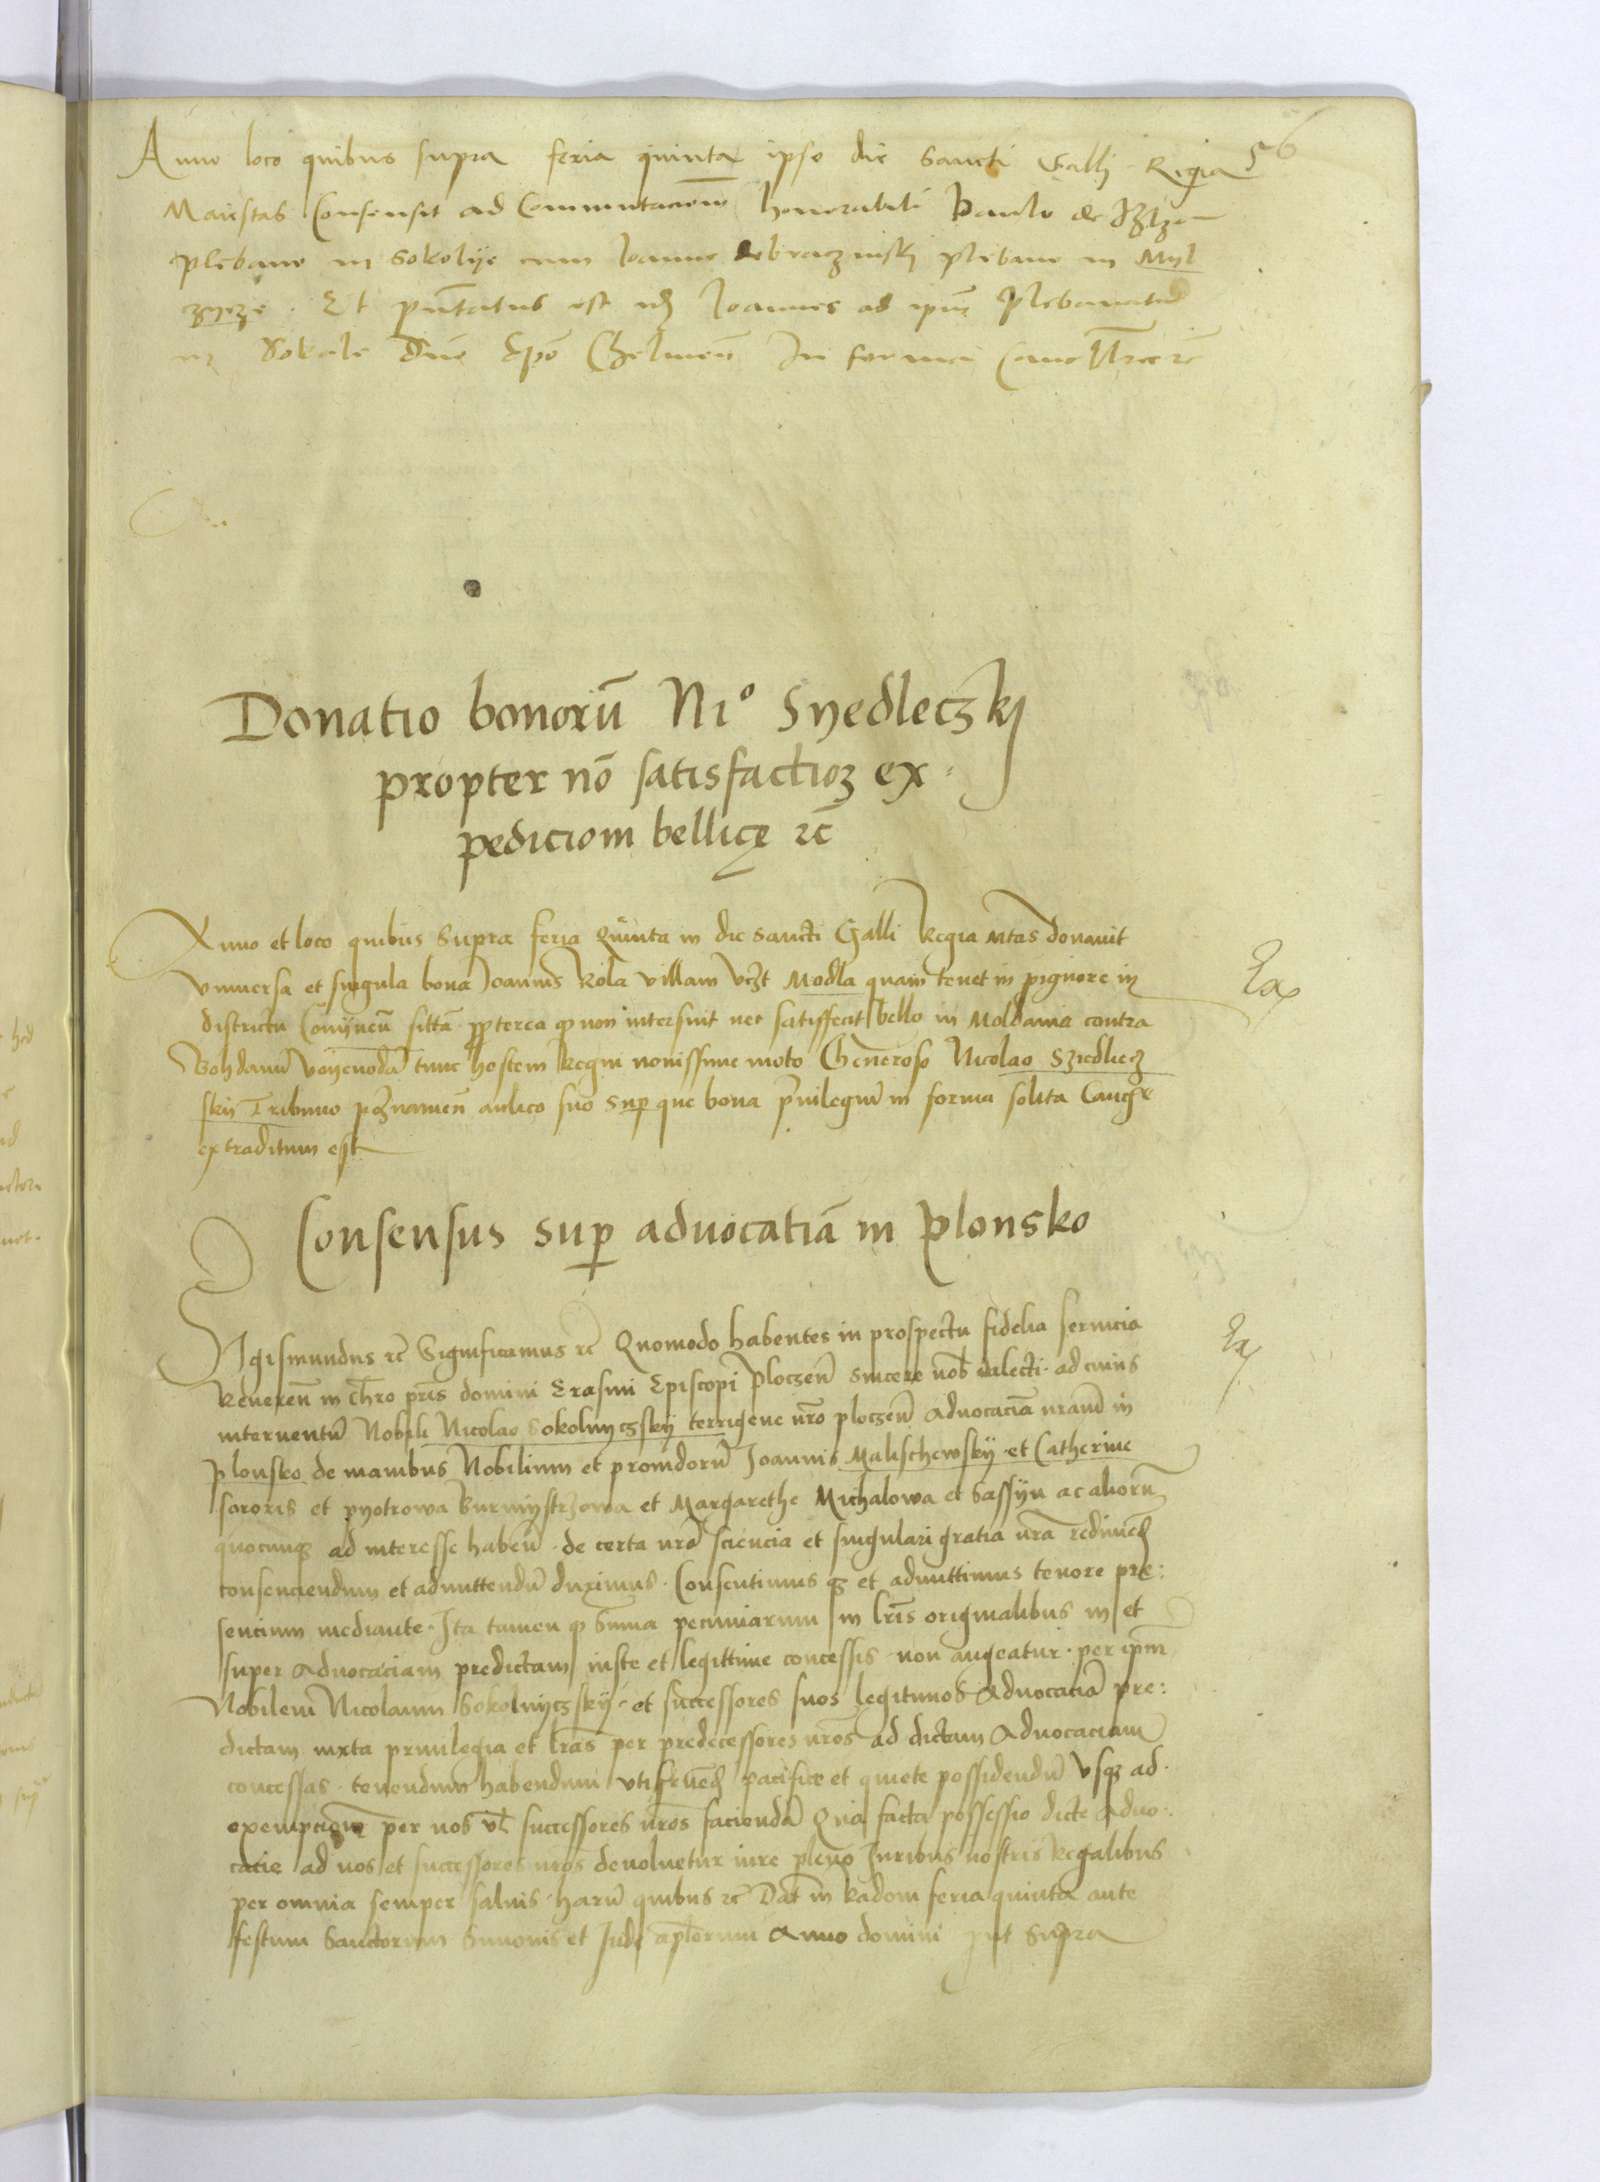 56
Anno loco quibus supra feria quinta ipso die Sancti Galli Regia
Maiestas Consensit ad Commutacionem honorabili Paulo de
plebano in Sokolÿe cum Joanne plebano in Myl
. Et pñtatus est Joannes ad ipm̄ Plebanatū
in Sokole Dño Epō Chelmeñ In forma
Donatio bonorū Niº Syedleczkj
propter nō satisfactioȝ ex
pediciom bellicę ꝛc̄
Anno et loco quibus Supra feria Quinta in die sancti Galli Regia Mtas donauit
Vniuersa et singula bona Joannis Kola villam vcȝt Modla quam tenet in pignore in
districtu Conÿneñ sittā ꝓpterea ꝙ non interfuit nec satisfecit bello in Moldauia contra
Bohdanū Voÿeuodā tunc hostem Regni nouissime moto Generoso Nicolao Sziedliecz
skÿ Tribuno poȝnanieñ aulico suo Suꝑ que bona p̄uilegiū in forma solita Canc
extraditum est
Consensus suꝑ aduocatiā in Plonsko
Sigismundus ꝛc̄ Significamus ꝛc̄ Quomodo habentes in prospectu fidelia seruicia
Reuereñ in chr̄o pr̄is domini Erasmi Episcopi Ploczeñ sincere nob̄ dilecti. ad cuius
interuentū Nobili Nicolao Sokolnyczskÿ terrigene nr̄o ploczeñ Aduocaciā nr̄am in
Plonsko de manibus Nobilium et prouidorū Joannis Malischewskÿ et Catherine
sororis et pyotrowa Burmÿstrzowa et Margarethe Michalowa et Sassyn ac aliorū
quocunqȝ ad interesse habeñ. de certa nr̄a sciencia et singulari gratia nr̄a redimeñd
consenciendum et admittendū duximus. Consentimus qȝ et admittimus tenore pre:
sencium mediante. Ita tamen ꝙ Sum̄a pecuniarum in lr̄is originalibus in et
super Aduocaciam predictam iuste et legittime concessis non augeatur. per ip̄m
Nobilem Nicolaum Sokolnyczskÿ et successores suos legitimos Aduocaciā pre:
dictam iuxta priuilegia et lr̄as per predecessores nr̄os ad dictam Aduocaciam
concessas. tenendum habendum vtifrueñd pacifice et quiete possidendū Vsqȝ ad.
exempcionē per nos vl̄ successores nr̄os faciendā Qua facta possessio dicte Aduo:
cacie ad nos et successores nr̄os deuoluetur iure pleno Juribus nostris Regalibus
per omnia semper saluis. harū quibus ꝛc̄ Dat̄ in Radom feria quinta ante
festum Sanctorum Simonis et Jude ap̄lorum Anno domini vt Supra